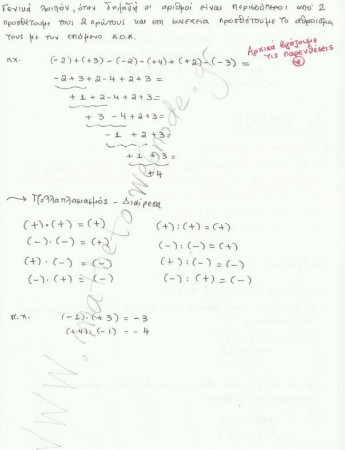 Γενικά λοιπόν, όταν δηλαδή οι αριθμοί είναι περισσότεροι από 2
προσθέτουμε τους 2 πρώτους και στη συνέχεια προσθέτουμε το άθροισμα
τους με τον επόμενο κ.ο.κ.
π.χ. (-2)+(+3)-(-2)-(+4)+(+2)-(-3) =
Αρχικά βγάζουμε
τις παρενθέσεις
-2+3+2-4+2+3=
+1+2-4+2+3=
+3-4+2+3=
-1 +2+3=
+1+3=
+4
→ Πολλαπλασιασμός - Διαίρεση
(+)·(+) = (+) (+):(+) = (+)
(-)·(-) = (+) (-):(-) = (+)
(+)·(-) = (-) (+):(-) = (-)
(-)·(+) = (-) (-):(+) = (-)
π.χ. (-1)·(+3) = -3
(+4):(-1) = -4